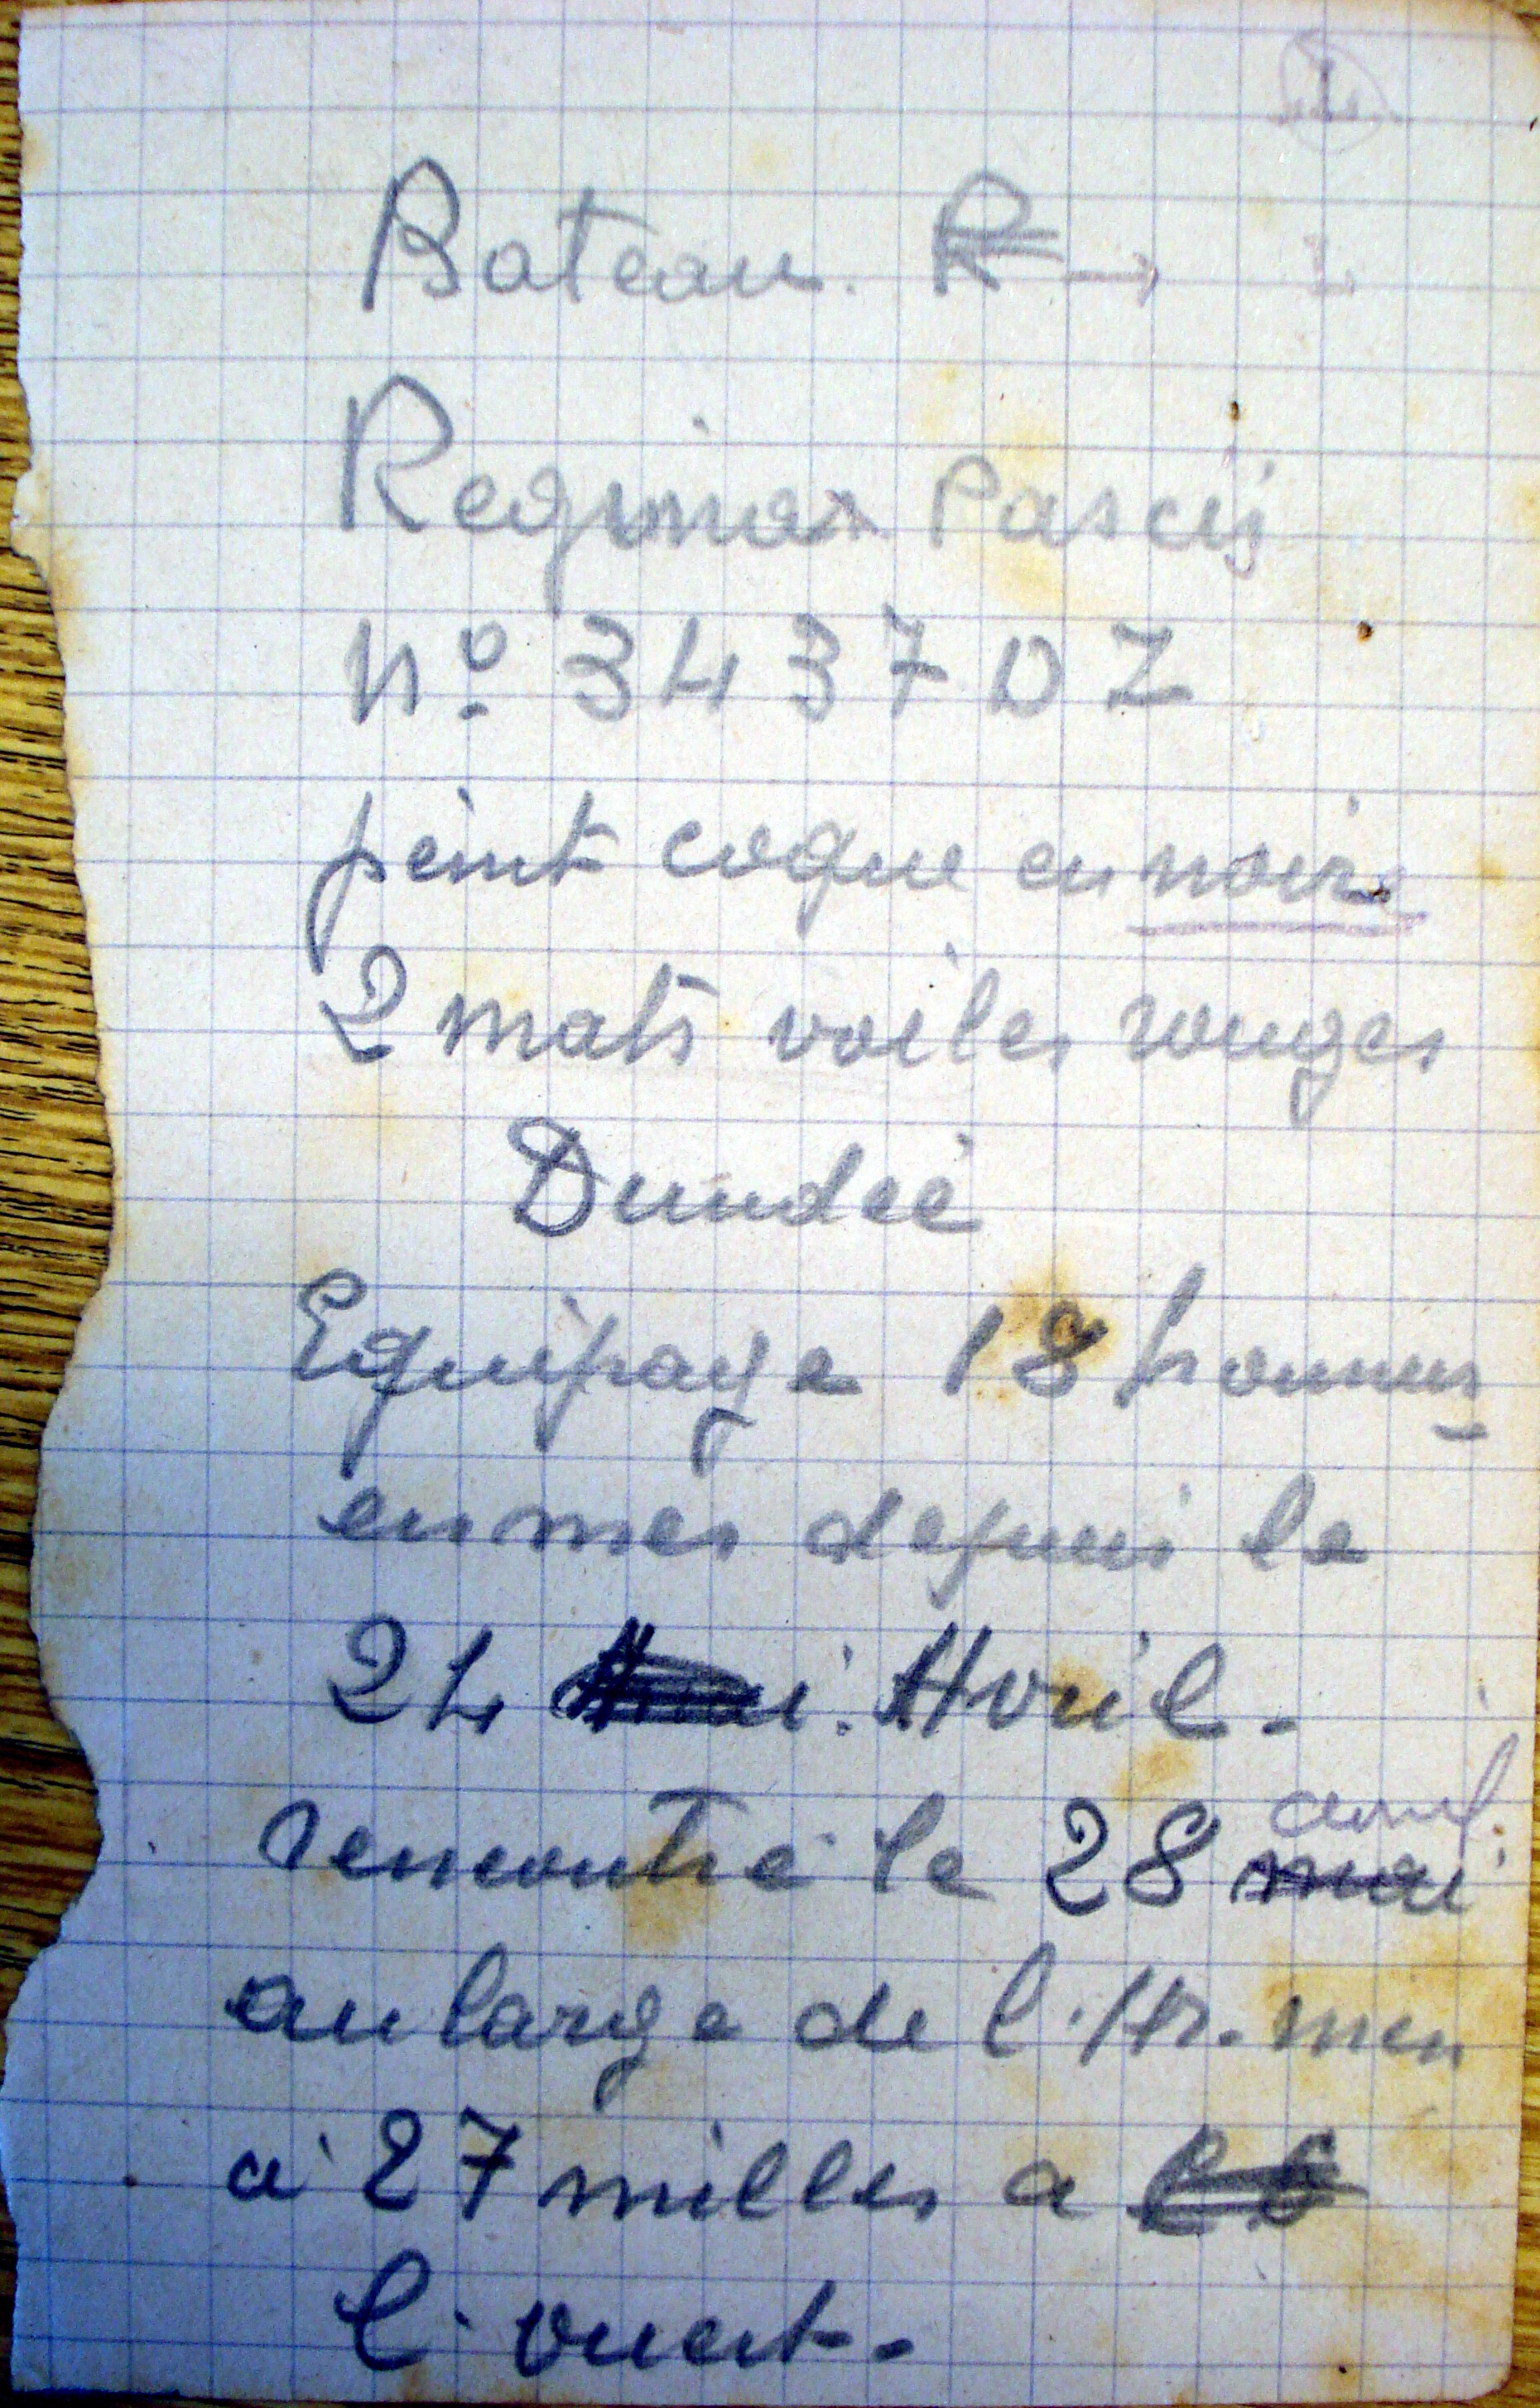 Bateau. R
Regina Pacis
nº 3437 DZ
peint coque en noir
2 mats voiles rouges
Dundeé
Equipage 18 hommes
en mer depuis le
24 Mai. Avril.
rencontré le 28 mai avril.
au large de l'Ar. men
a 27 milles a
l'ouest.